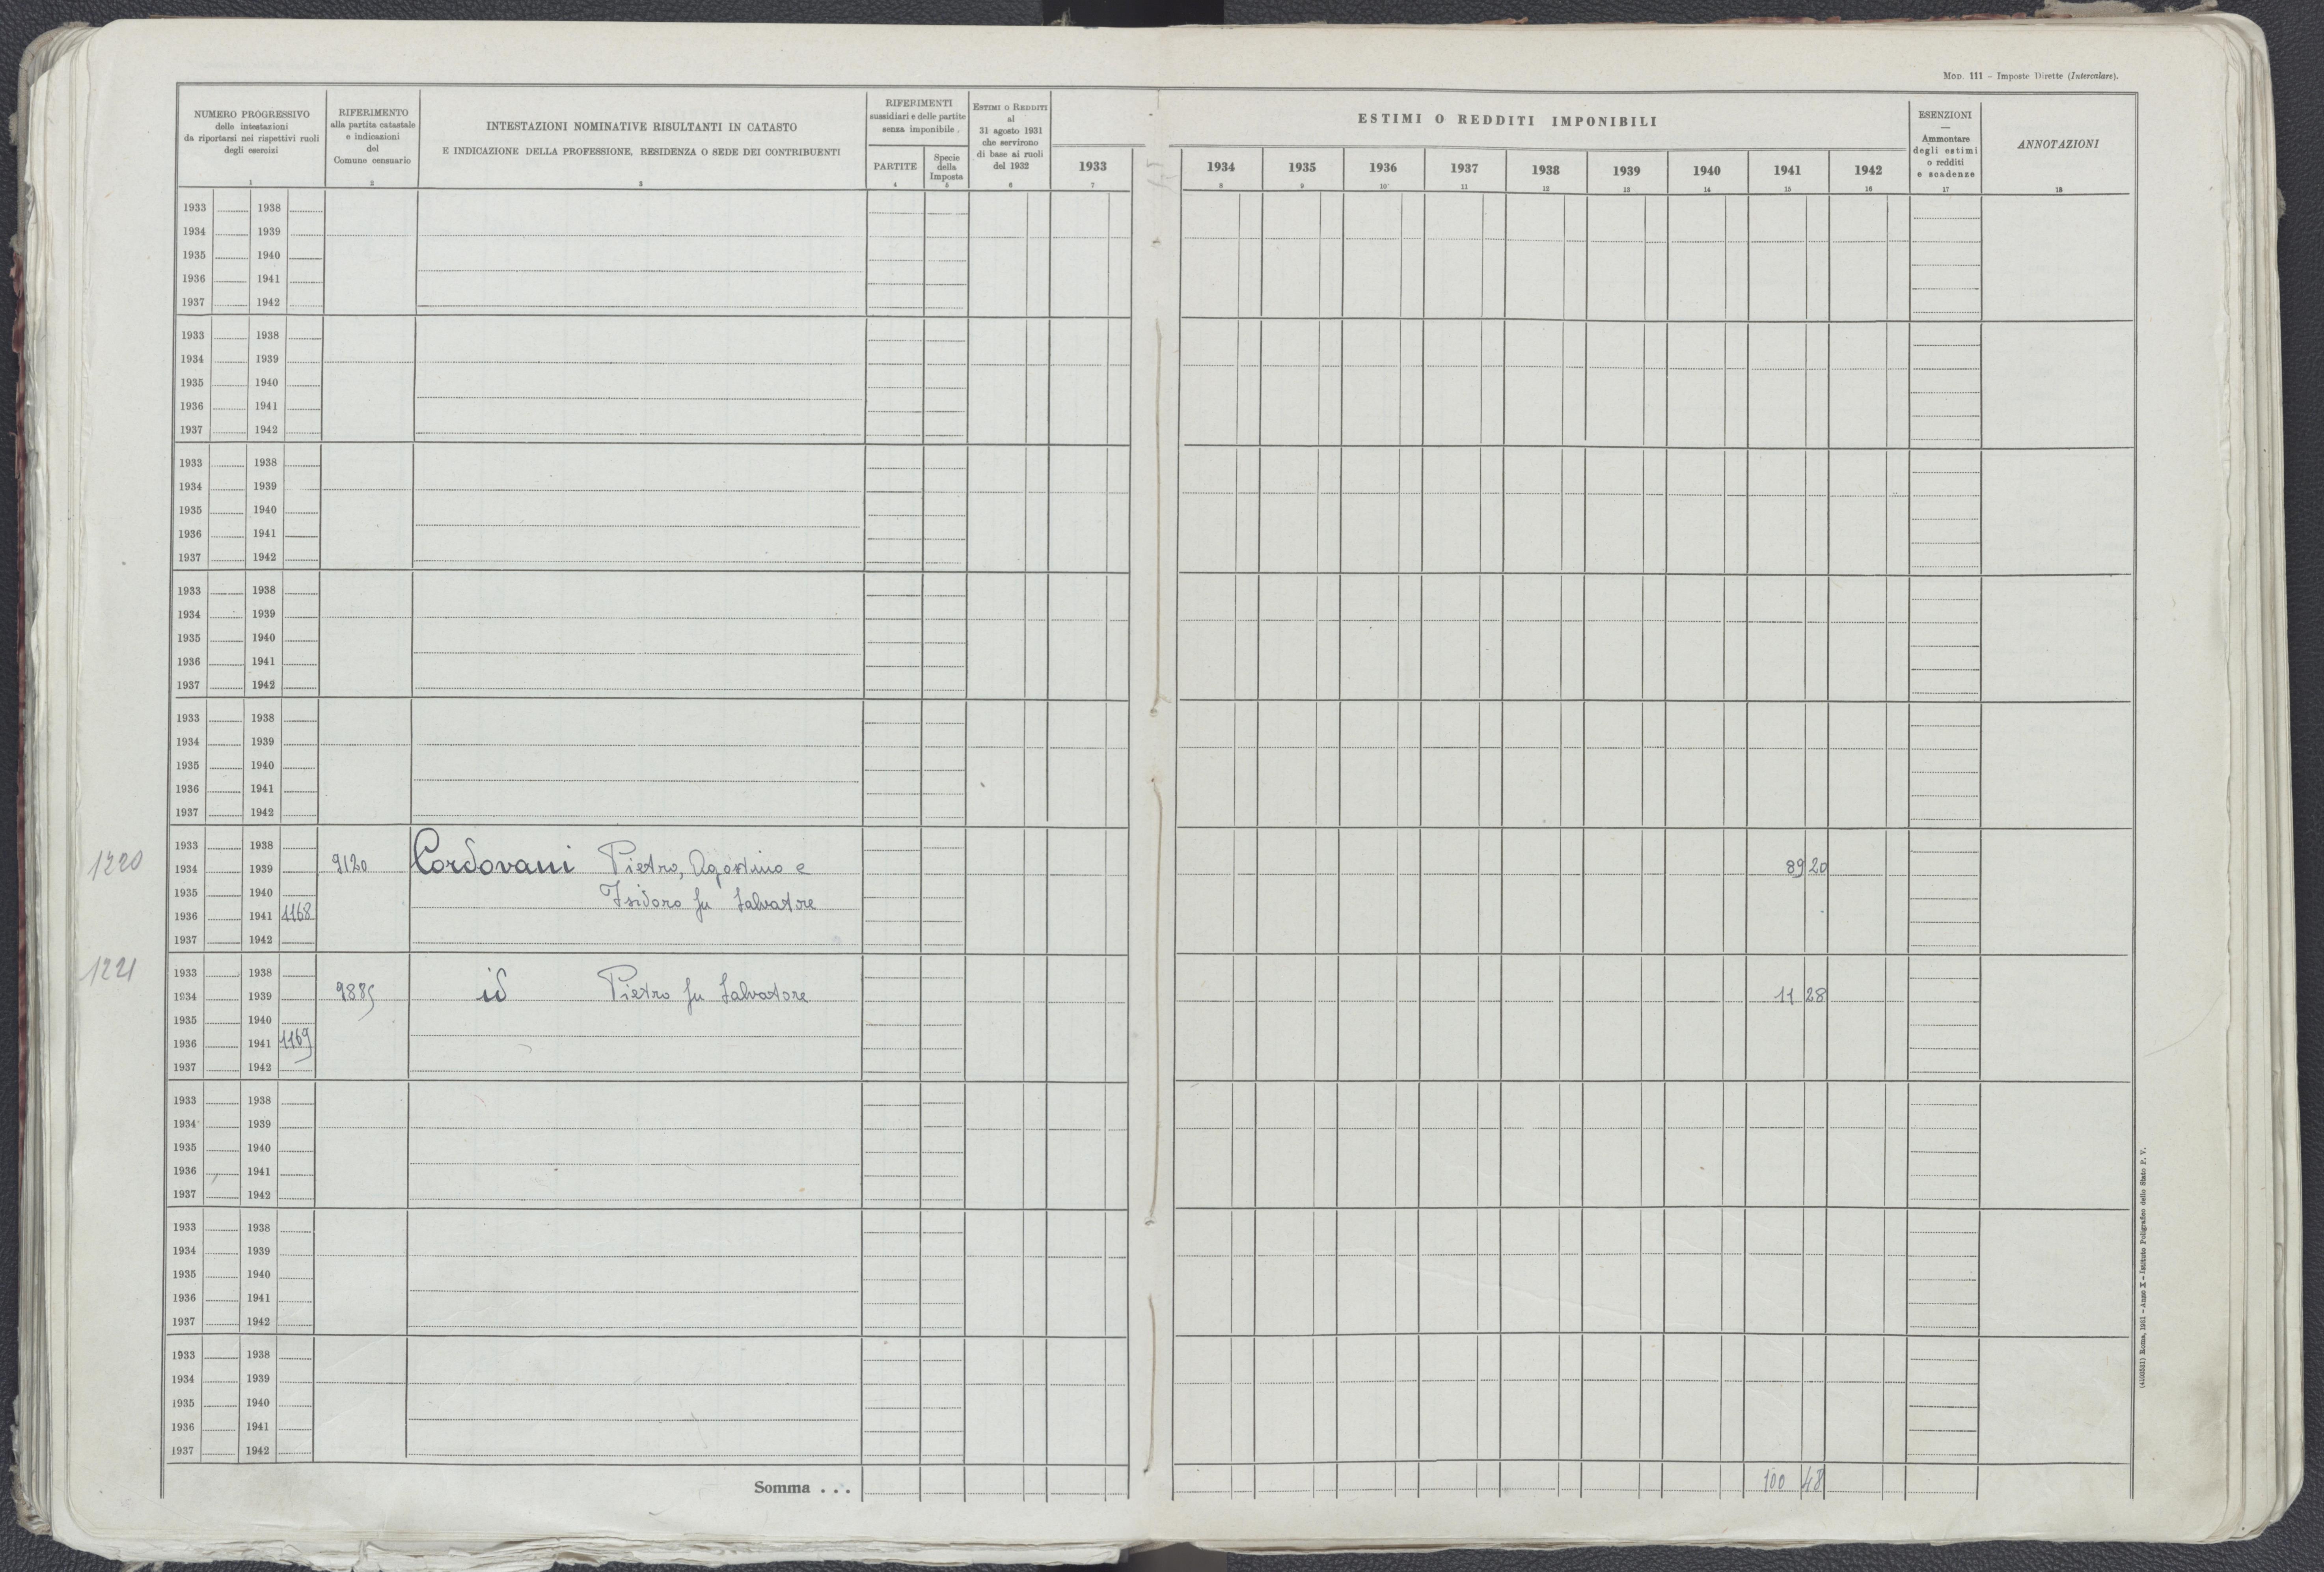 MOD. 111 – Imposte Dirette (Intercalare).
NUMERO PROGRESSIVO
delle intestazioni
da riportarsi nei rispettivi ruoli
degli esercizi
1
RIFERIMENTO
alla partita catastale
e indicazioni
del
Comune censuario
2
INTESTAZIONI NOMINATIVE RISULTANTI IN CATASTO
E INDICAZIONE DELLA PROFESSIONE, RESIDENZA O SEDE DEI CONTRIBUENTI
3
RIFERIMENTI
sussidiari e delle partite
senza imponibile
PARTITE
4
Specie
della
Imposta
5
ESTIMI O REDDITI
al
31 agosto 1931
che servirono
di base ai ruoli
del 1932
6
1933
7
ESTIMI O REDDITI IMPONIBILI
1934 1935 1936 1937 1938 1939 1940 1941 1942
8 9 10 11 12 13 14 15 16
ESENZIONI
—
Ammontare
degli estimi
o redditi
e scadenze
17
ANNOTAZIONI
18
1933 1938
1934 1939
1935 1940
1936 1941
1937 1942
1933 1938
1934 1939
1935 1940
1936 1941
1937 1942
1933 1938
1934 1939
1935 1940
1936 1941
1937 1942
1933 1938
1934 1939
1935 1940
1936 1941
1937 1942
1933 1938
1934 1939
1935 1940
1936 1941
1937 1942
1933 1938
1220 1934 1939 9120 Cordovani Pietro, Agostino e 89 20
1935 1940 Isidoro fu Salvatore
1936 1941 1168
1937 1942
1221 1933 1938
1934 1939 9885 id Pietro fu Salvatore 11 28
1935 1940
1936 1941 1169
1937 1942
1933 1938
1934 1939
1935 1940
1936 1941
1937 1942
1933 1938
1934 1939
1935 1940
1936 1941
1937 1942
1933 1938
1934 1939
1935 1940
1936 1941
1937 1942
Somma . . . 100 48
Roma, 1931 – Anno X – Istituto Poligrafico dello Stato P. V.